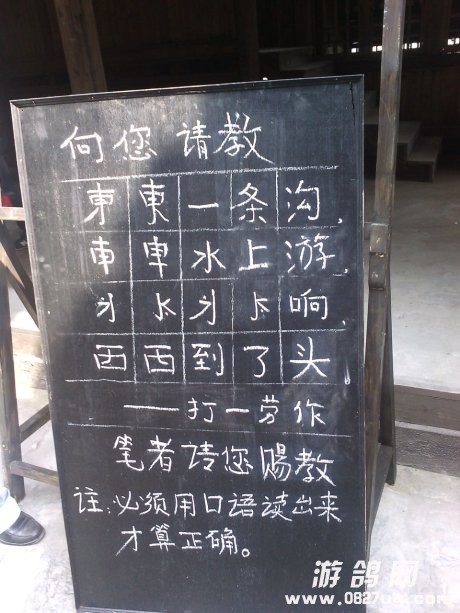 向您请教
東東一条沟,
車水上游,
响,
西西到了头
——打一劳作
笔者请您赐教
註:必须用口语读出来
才算正确。
游鸽网